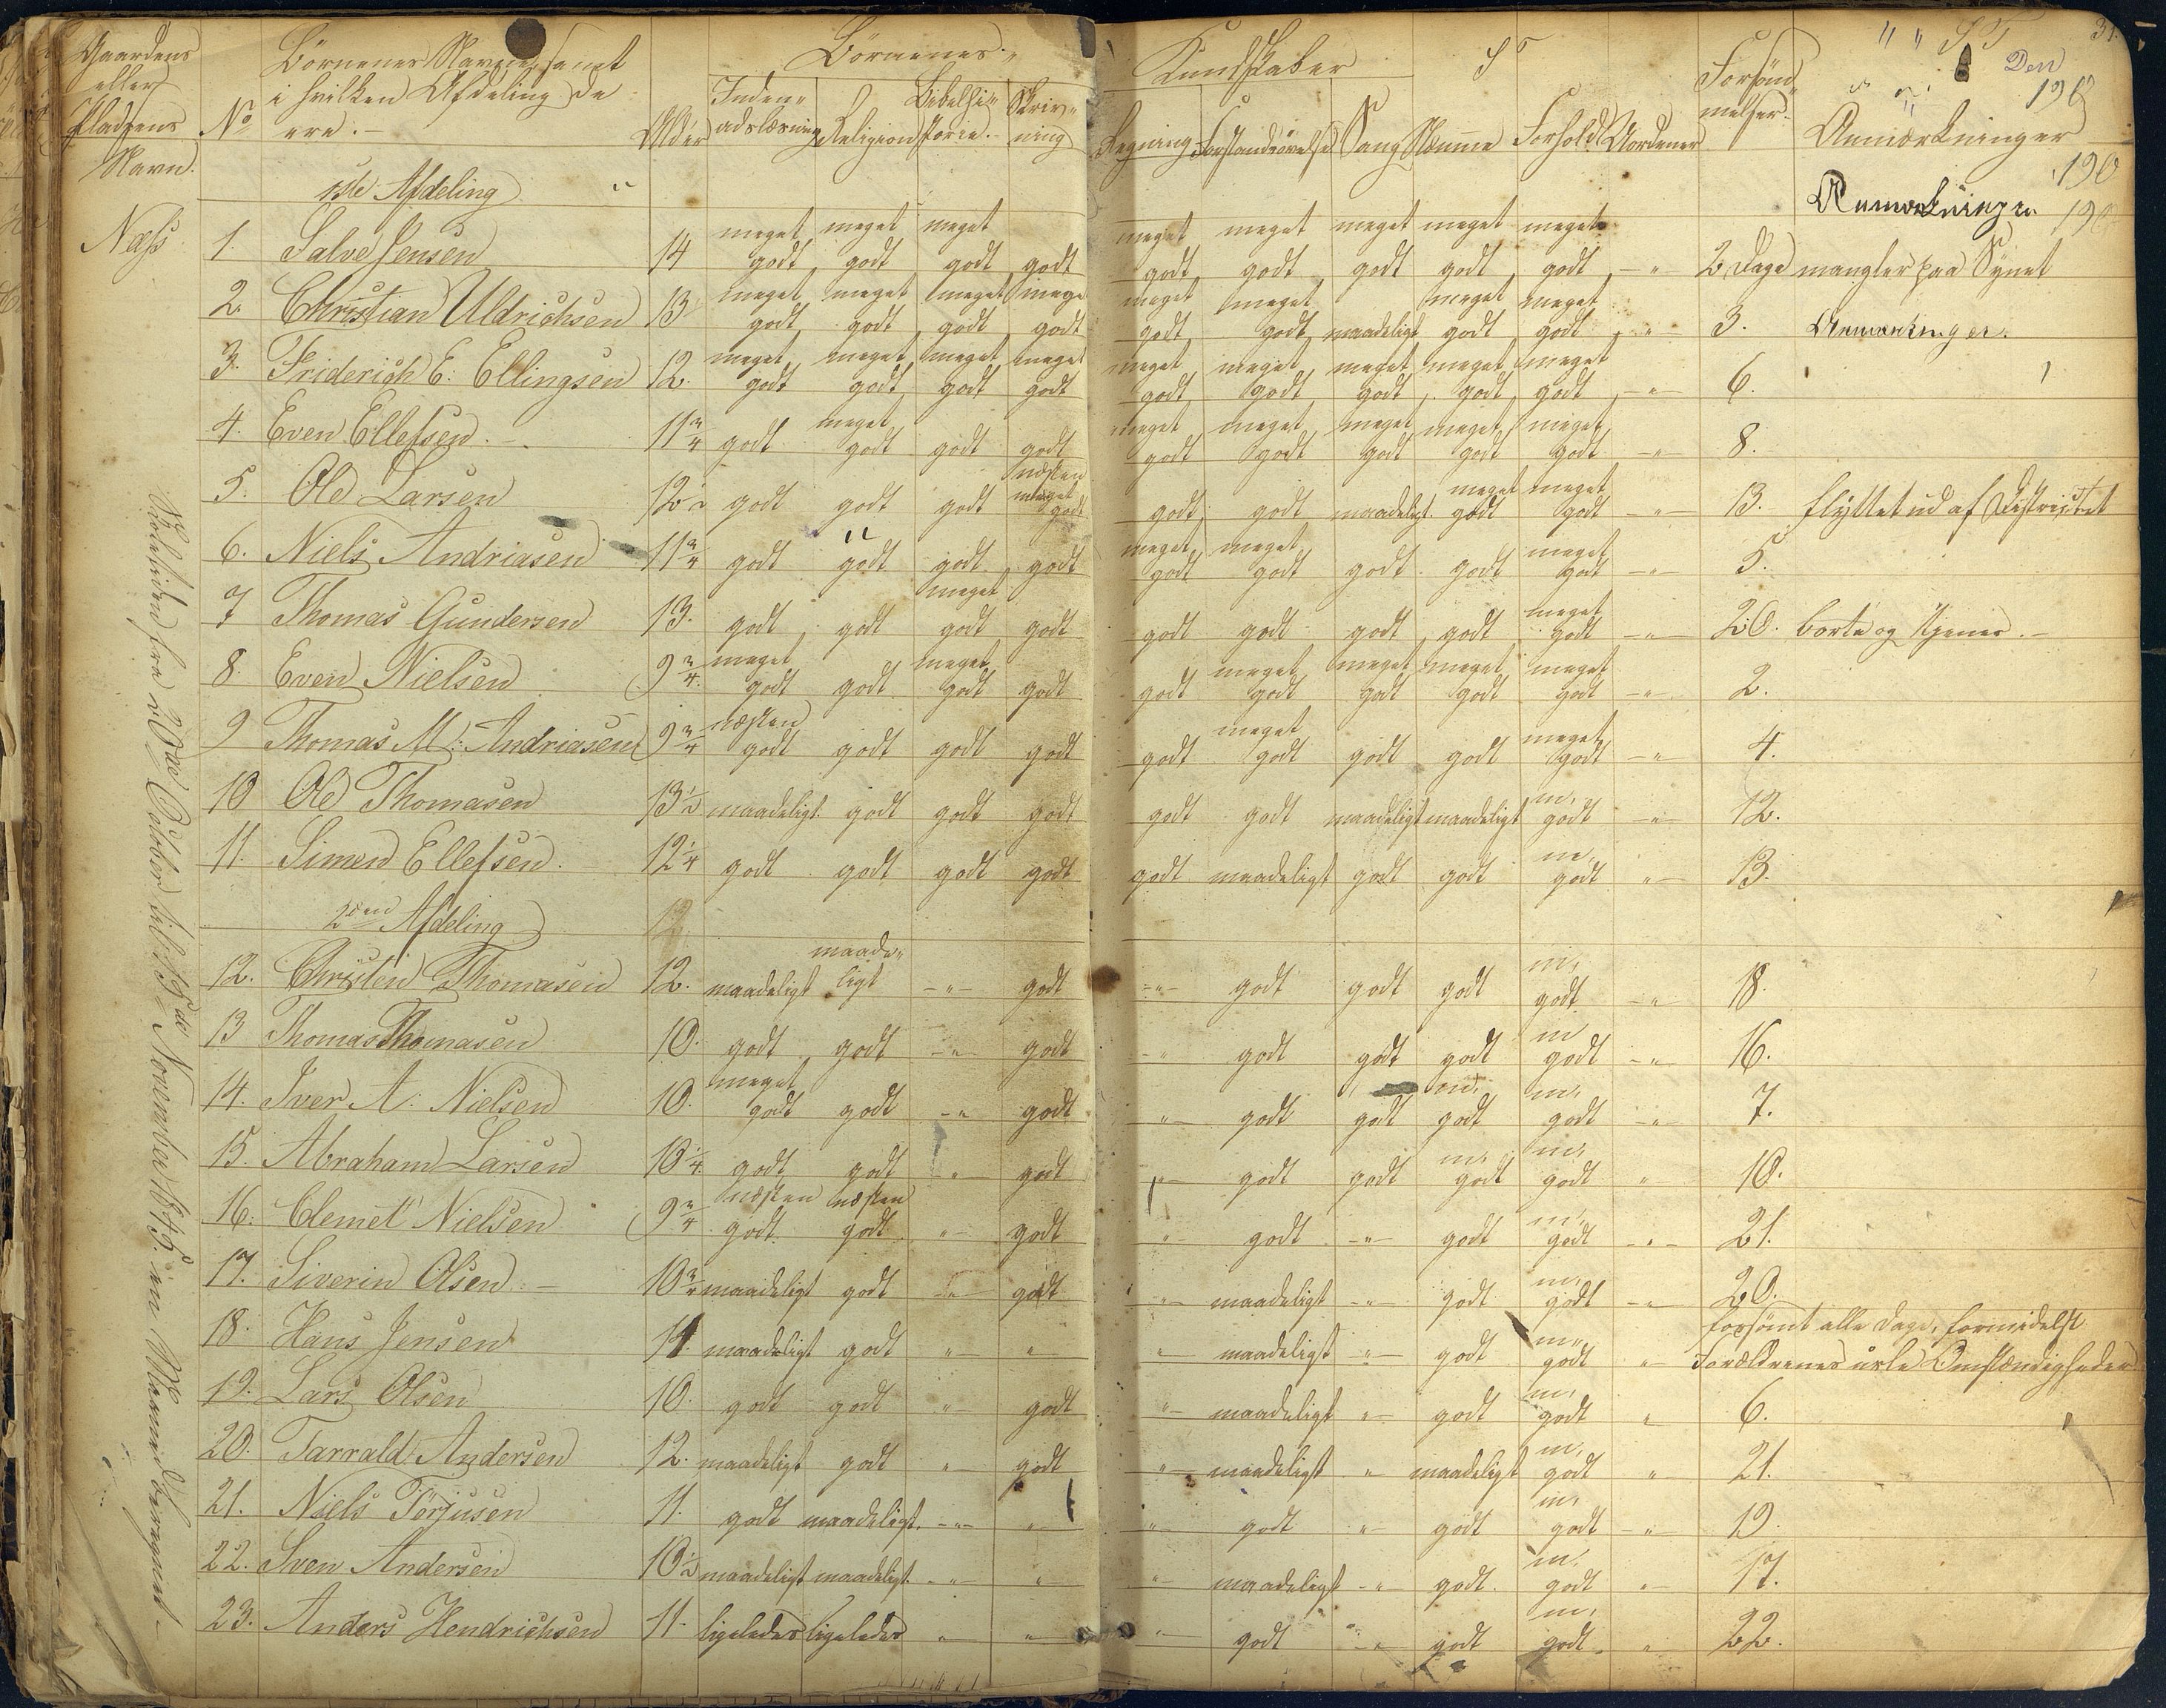 Gaardens eller Pladsens Navn. No Börnenes Navne, samt i hvilken Afdeling de ere.- Alder Börnenes Kundskaber
Inden- adslæsning Religion Bibelhi- storie.- Skriv- ning Regning Forstandsövelse Sang Nemme Forhold Uordener Forsöm- melser. Anmærkninger
31.
Den
190
1ste Afdeling
190
Anmærkninger 190
Næss 1. Salve Jensen 14 meget godt meget godt meget godt godt meget godt meget godt meget godt meget godt meget godt -"- 2 Dage mangler paa Synet
2. Christian Uldrichsen 13 meget godt meget godt meget godt meget godt meget godt meget godt maadeligt meget godt meget godt -"- 3. Anmærkninger.
3. Friderich E. Ellingsen 12. meget godt meget godt meget godt meget godt meget godt meget godt meget godt meget godt meget godt -"- 6.
4. Even Ellefsen.- 11 3/4 godt meget godt godt godt meget godt meget godt meget godt meget godt meget godt -"- 8.
5. Ole Larsen 12 1/2 godt godt godt næsten meget godt godt godt maadeligt. meget godt meget godt -"- 13. flyttet ud af Districtet
6. Niels Andriasen 11 3/4 godt godt godt godt meget godt meget godt godt godt meget godt -"- 5.
7 Thomas Gundersen 13. godt godt meget godt godt godt godt godt godt meget godt -"- 20. borte og tjener.-
8. Even Nielsen 9 3/4 meget godt godt meget godt godt godt meget godt meget godt meget godt meget godt -"- 2.
9 Thomas M: Andriasen 9 3/4 næsten godt godt godt godt godt meget godt godt godt meget godt -"- 4.
10 Ole Thomasen 13 1/2 maadeligt. godt godt godt godt godt maadeligt maadeligt m. godt -"- 12.
11. Simen Ellefsen. 12 1/4 godt godt godt godt godt maadeligt godt godt m. godt "- 13.
2den Afdeling
12. Christen Thomasen 12. maadeligt maade- ligt -"- godt -"- godt godt godt m. godt -"- 18.
13 Thomas Thomasen 10. godt godt -"- godt -"- godt godt godt m godt -"- 16.
14. Iver A. Nielsen 10. meget godt godt -"- godt "- godt godt m. godt m. godt -"- 7.
15. Abraham Larsen 10 1/4 godt godt -"- godt "- godt godt m. godt m. godt " 10.
16. Clemet Nielsen 9 3/4 næsten godt næsten godt "- godt "- godt -"- godt m. godt -"- 21.
17. Siverin Olsen.- 10 3/4 maadeligt godt -"- godt "- maadeligt -"- godt m. godt -"- 20.
18. Hans Jensen 11. maadeligt godt "- " " maadeligt -"- godt m. godt " forsömt alle Dage, formedelst Forældrenes usle Omstændigheder
19. Lars Olsen 10. godt godt "- godt "- maadeligt "- godt m. godt " 6.
20. Tarrald Andersen 12. maadeligt godt " godt "- maadeligt "- maadeligt m. godt " 21.
21. Niels Törjusen 11. godt maadeligt. -"- "- "- godt "- godt m. godt -"- 19.
22. Sven Andersen 10 1/2 maadeligt maadeligt -"- " "- maadeligt -"- godt. m. godt " 17.
23. Anders Hendrichsen 11- ligeledes ligeledes " "- "- godt -"- godt m. godt " 22.
Skoletiden fra 20de October til 15de November 1845